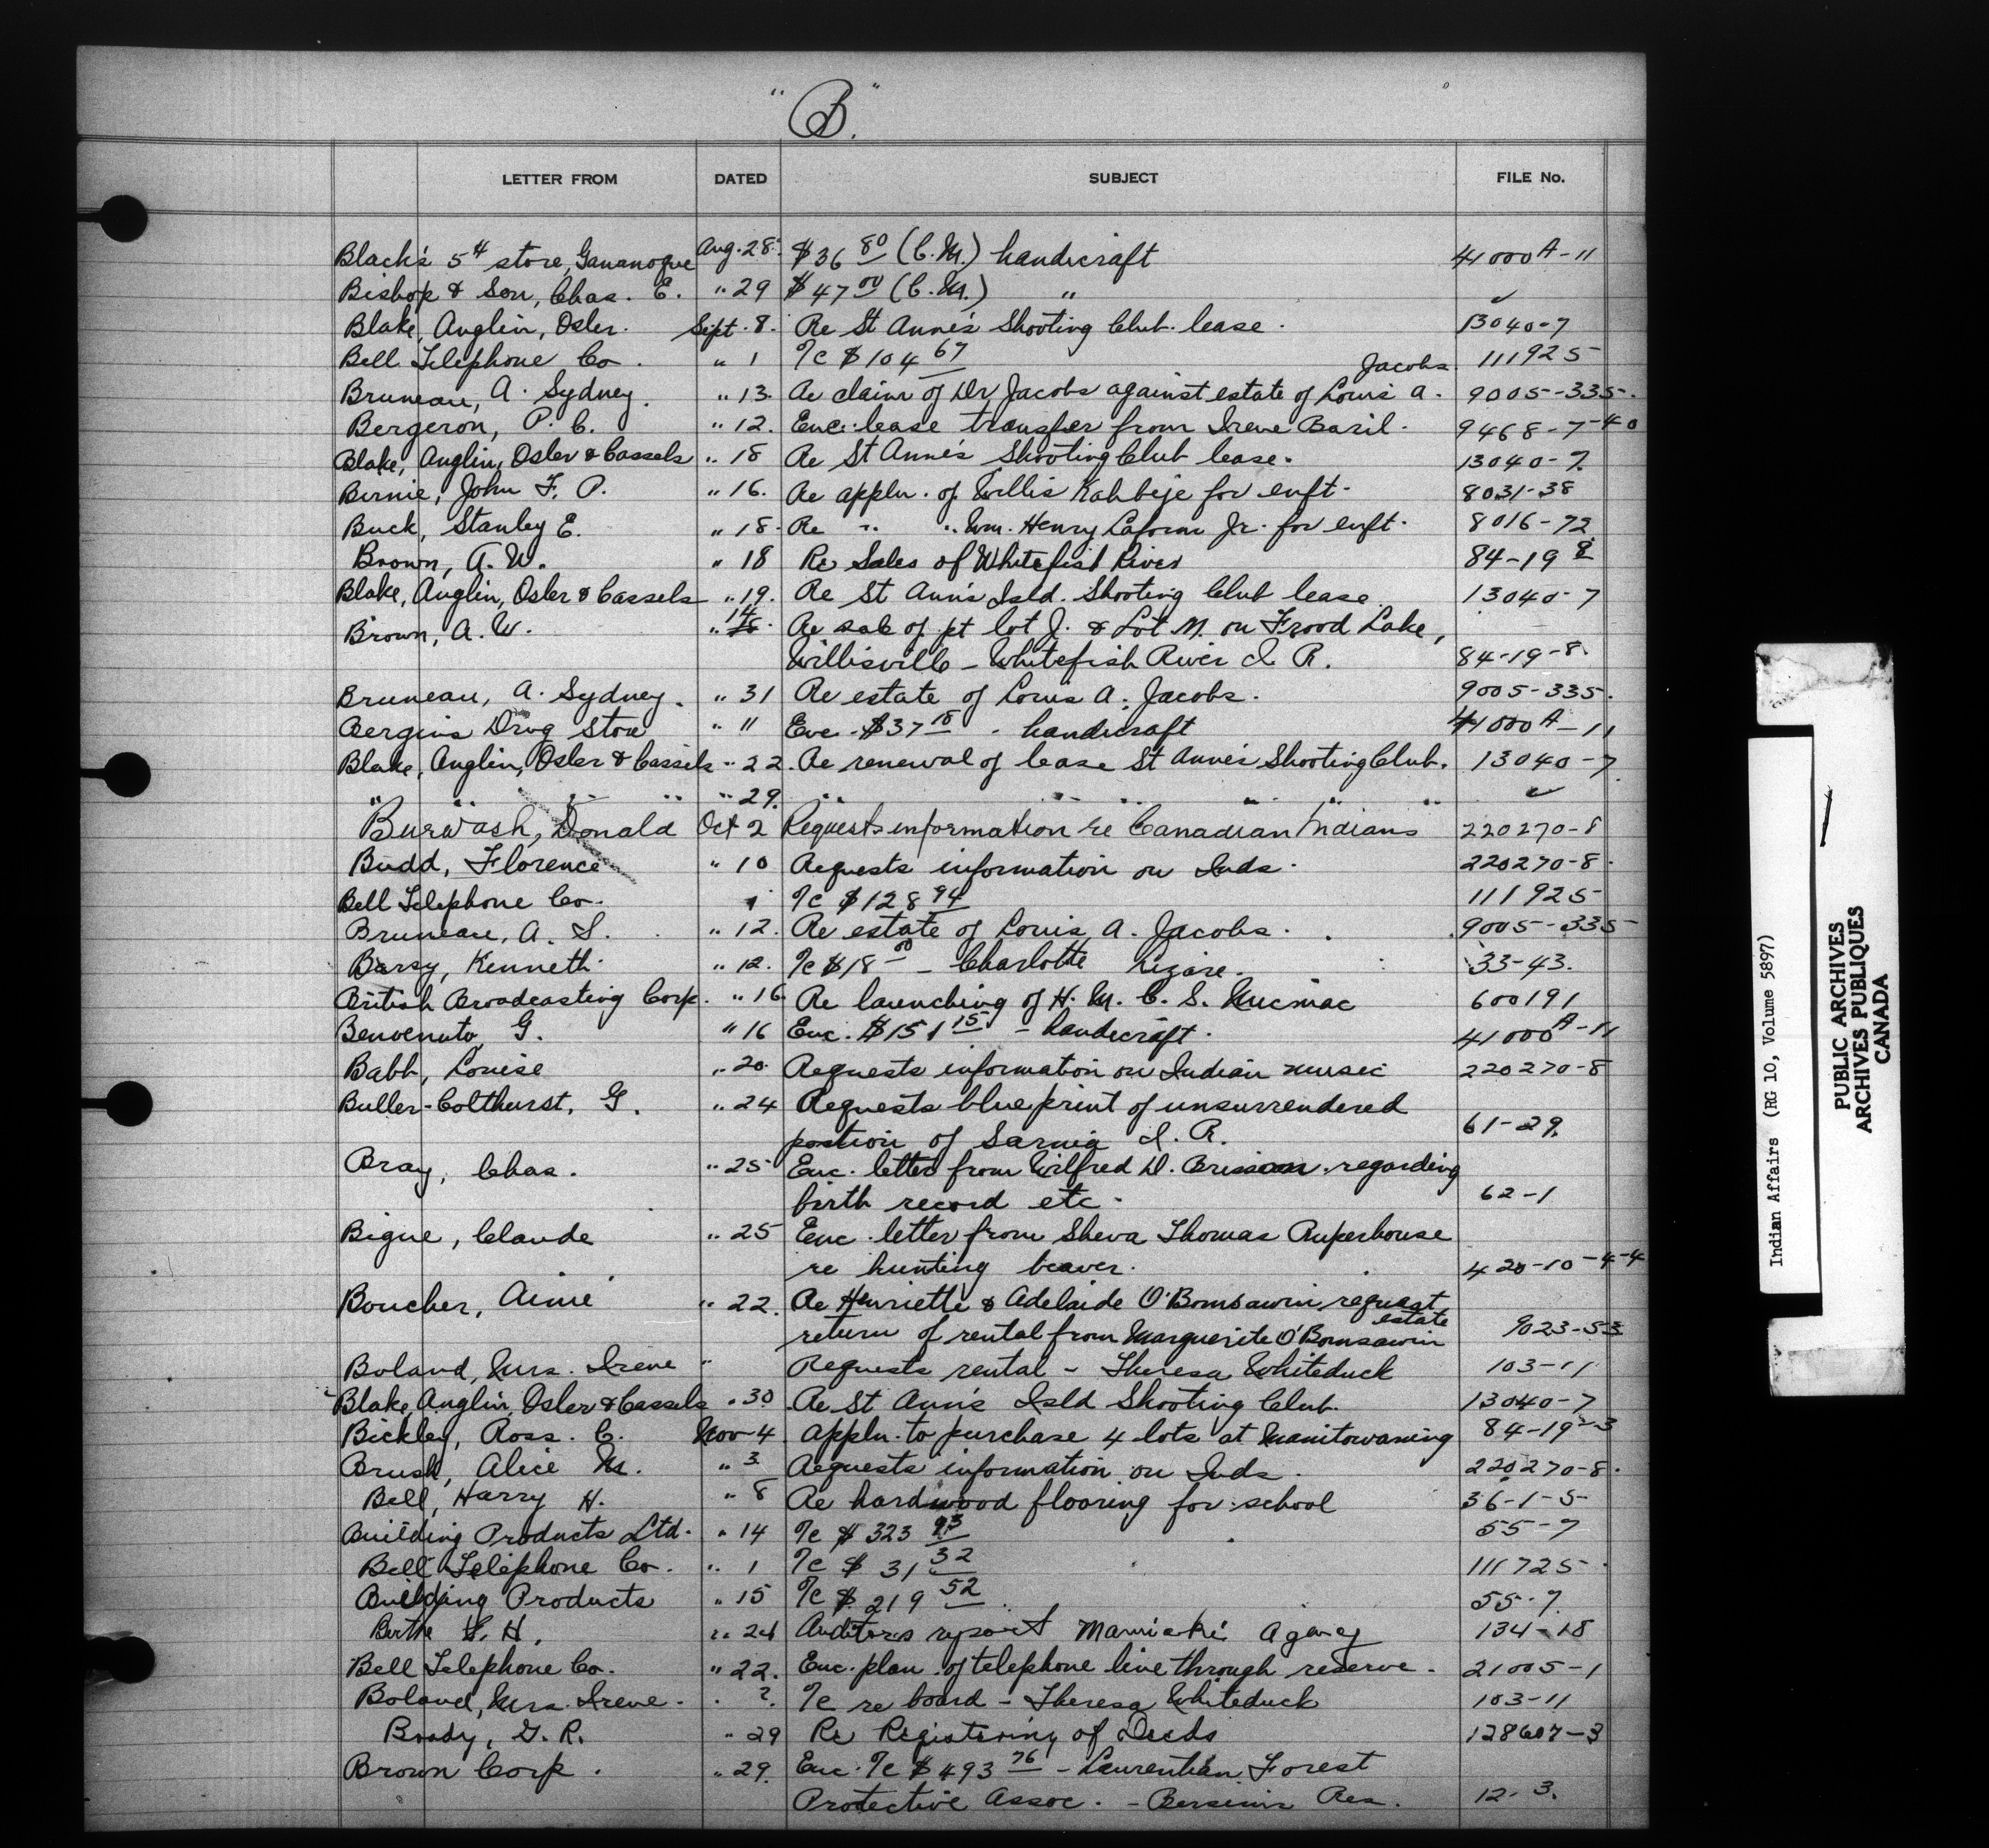 "B."
LETTER FROM DATED SUBJECT FILE No.
Black's 5¢ store, Gananoque Aug. 28. $36 80 (C.M.) handicraft 41000A-11
Bishop & Son, Chas. E. " 29 $47 00 (C.M.) " ✓
Blake, Anglin, Osler. Sept. 8. Re St Anne's Shooting Club lease. 13040-7
Bell Telephone Co. " 1 Tc $104 67 111925
Jacobs.
Bruneau, A. Sydney. " 13. Re claim of Dr Jacobs against estate of Louis A. 9005-335.
Bergeron, P. C. " 12. Enc. lease transfer from Irene Baril. 9468-7-40
Blake, Anglin, Osler & Cassels " 18 Re St Anne's Shooting Club lease. 13040-7.
Birnie, John F. P. " 16. Re appln. of Willis Kahbeje for enft. 8031-38
Buck, Stanley E. " 18. Re " " Wm. Henry Laform Jr. for enft. 8016-72
Brown, A. W. " 18 Re Sales of Whitefish River 84-19 8
Blake, Anglin, Osler & Cassels " 19. Re St Ann's Isld. Shooting Club lease 13040-7
Brown, A. W. " 14 Re sale of pt lot J. & Lot M. on Frood Lake,
Willisville - Whitefish River I. R. 84-19-8.
Bruneau, A. Sydney. " 31 Re estate of Louis A. Jacobs. 9005-335.
Bergins Drug Store " 11 Enc. $37 18 - handicraft 41000A-11
Blake, Anglin, Osler & Cassels " 22. Re renewal of lease St Anne's Shooting Club. 13040-7
" " " " " " 29. " " " " " " ✓
Burwash, Donald Oct 2 Requests information re Canadian Indians 220270-8
Budd, Florence " 10 Requests information on Inds. 220270-8.
Bell Telephone Co. 1 Tc $128 94 111925
Bruneau, A. S. " 12. Re estate of Louis A. Jacobs. 9005-335
Barsy, Kenneth " 12. Tc $18 00 - Charlotte 33-43.
British Broadcasting Corp. " 16. Re launching of H. M. C. S. Micmac 600191
Benvenuto, G. " 16 Enc. $151 15 - handicraft. 41000A-11
Babb, Louise " 20. Requests information on Indian music 220270-8
Buller-Colthurst, G. " 24 Requests blue print of unsurrendered
portion of Sarnia I. R. 61-29.
Bray, Chas. " 25 Enc. letter from Wilfred D. Brisson regarding
birth record etc. 62-1
Bigue, Claude " 25 Enc. letter from Sheva Thomas Ruperhouse
re hunting beaver. 420-10-4-4
Boucher, Aimé " 22. Re Henriette & Adelaide O'Bomsawin request
estate
return of rental from Marguerite O'Bomsawin 9023-53
Boland, Mrs. Irene " Requests rental - Theresa Whiteduck 103-11
Blake, Anglin, Osler & Cassels " 30 Re St Ann's Isld Shooting Club. 13040-7
Bickley, Ross. C. Nov 4 Appln. to purchase 4 lots at Manitowaning 84-19-3
Brush, Alice M. " 3 Requests information on Inds. 220270-8.
Bell, Harry H. " 8 Re hardwood flooring for school 36-1-5
Building Products Ltd. " 14 Tc $323 93 55-7
Bell Telephone Co. " 1 Tc $31 32 111725
Building Products " 15 Tc $219 52 55-7
H. " 24 Auditors report Maniwaki Agency 134-18
Bell Telephone Co. " 22. Enc. plan of telephone line through reserve. 21005-1
Boland, Mrs. Irene. " ?. Tc re board - Theresa Whiteduck 103-11
G. R. " 29 Re Registering of Deeds 128607-3
Brown Corp. " 29. Enc. Tc $493 76 - Laurentian Forest
Protective Assoc. - Bersimis Res. 12-3.
Indian Affairs (RG 10, Volume 5897)
PUBLIC ARCHIVES
ARCHIVES PUBLIQUES
CANADA